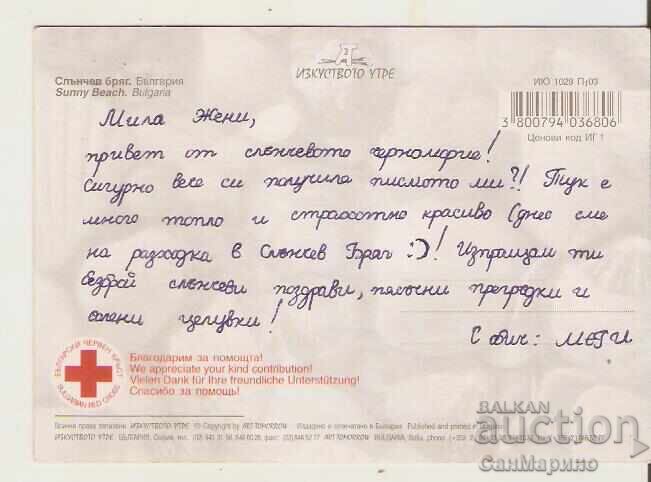 ИЗКУСТВОТО УТРЕ
Слънчев бряг. България
Sunny Beach. Bulgaria
ИЮ 1029 Пг03
3 800794 036806
Ценови код ИГ 1
Мила Жени,
привет от слънчевото черноморие!
Сигурно вече си получила писмото ми?! Тук е
много топло и страхотно красиво (днес сме
на разходка в Слънчев Бряг :)! Изпращам ти
безброй слънчеви поздрави, пясъчни прегръдки и
солени целувки!
С обич: МЕГИ
БЪЛГАРСКИ ЧЕРВЕН КРЪСТ
BULGARIAN RED CROSS
Благодарим за помощта!
We appreciate your kind contribution!
Vielen Dank für Ihre freundliche Unterstützung!
Спасибо за помощь!
Всички права запазени ИЗКУСТВОТО УТРЕ © Copyright by ART TOMORROW Издадено и отпечатано в България Published and printed in
ИЗКУСТВОТО УТРЕ БЪЛГАРИЯ, София, тел. ART TOMORROW BULGARIA, Sofia, phone
BALKAN
auction
СанМарино